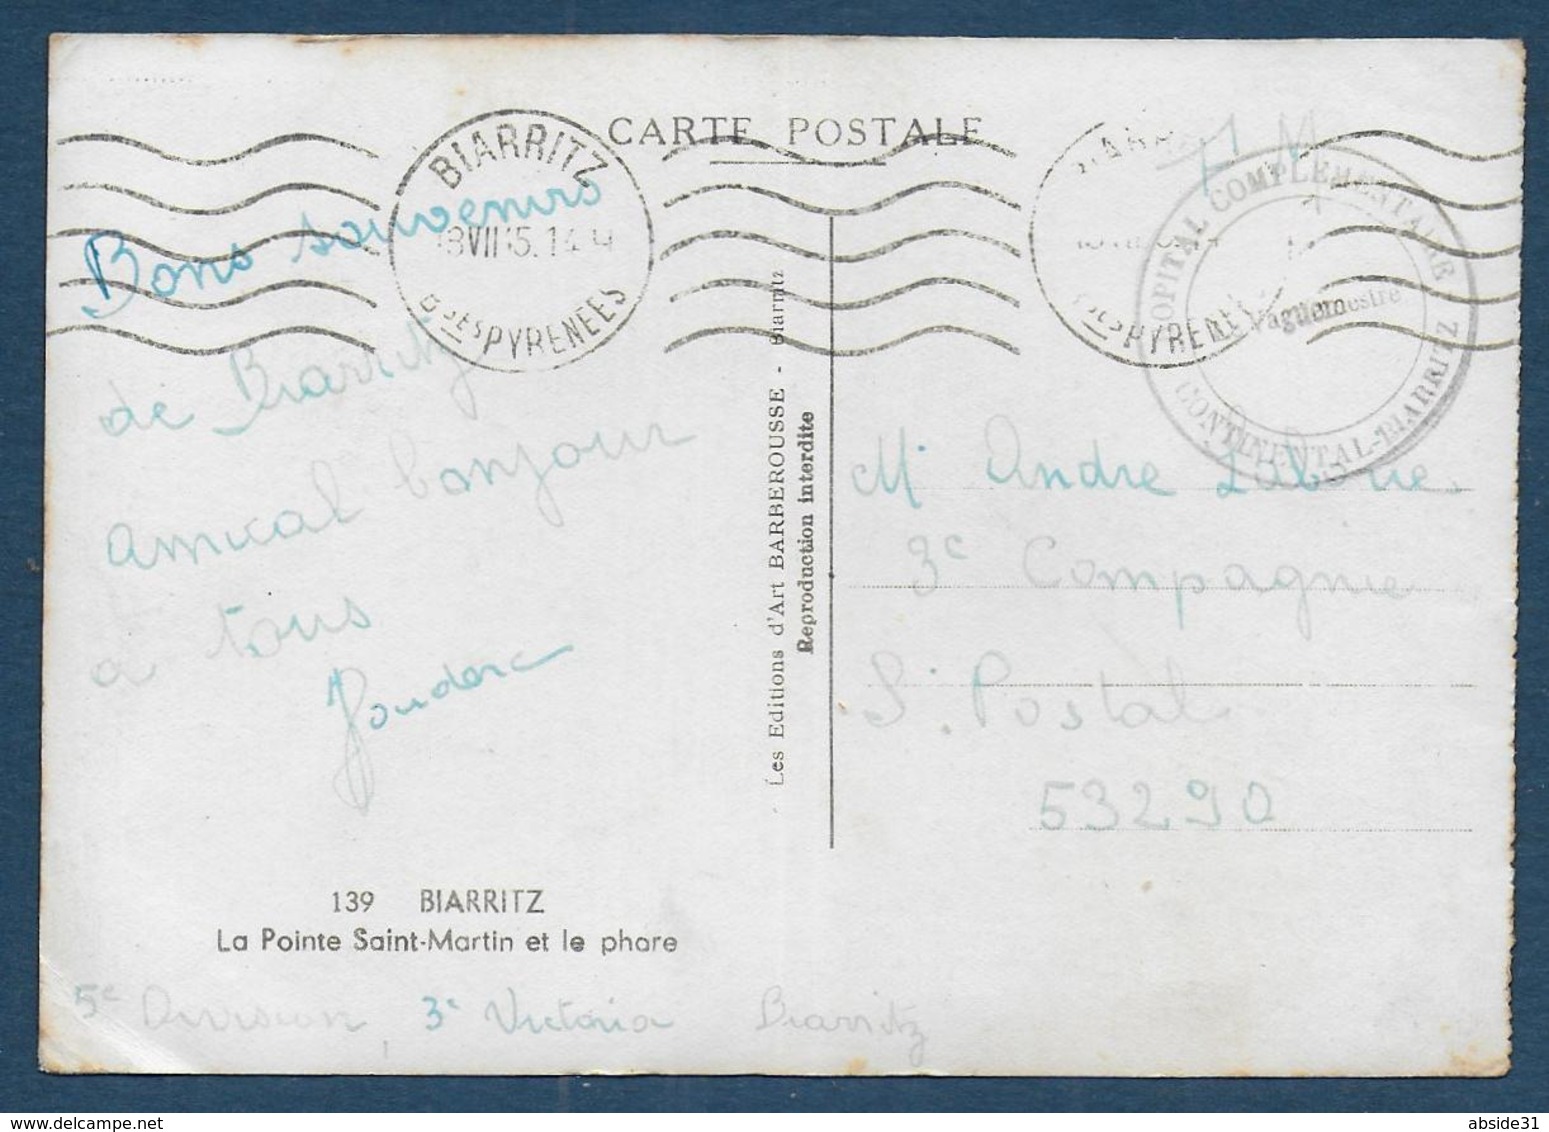 CARTE POSTALE
BIARRITZ
18 VII 45. 14 H
Bses PYRENEES
F M
HOPITAL COMPLEMENTAIRE
Vaguemestre
CONTINENTAL-BIARRITZ
Bons souvenirs
de Biarritz
amical bonjour
a tous
Les Editions d'Art BARBEROUSSE - Biarritz
Reproduction interdite
Mr Andre
3e Compagnie
S. Postal
53290
139 BIARRITZ
La Pointe Saint-Martin et le phare
5e Division 3e Victoria Biarritz
abside31